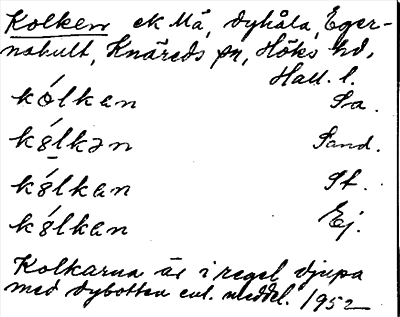 Kolken ek Mä, dyhåla, Eger-
nahult, Knäreds sn, Höks hd,
Hall. l.
kólkan Sa.
kólkən Sand.
kólkan St.
kólkan Ej.
Kolkarna är i regel djupa
med dybotten enl. meddel. 1952